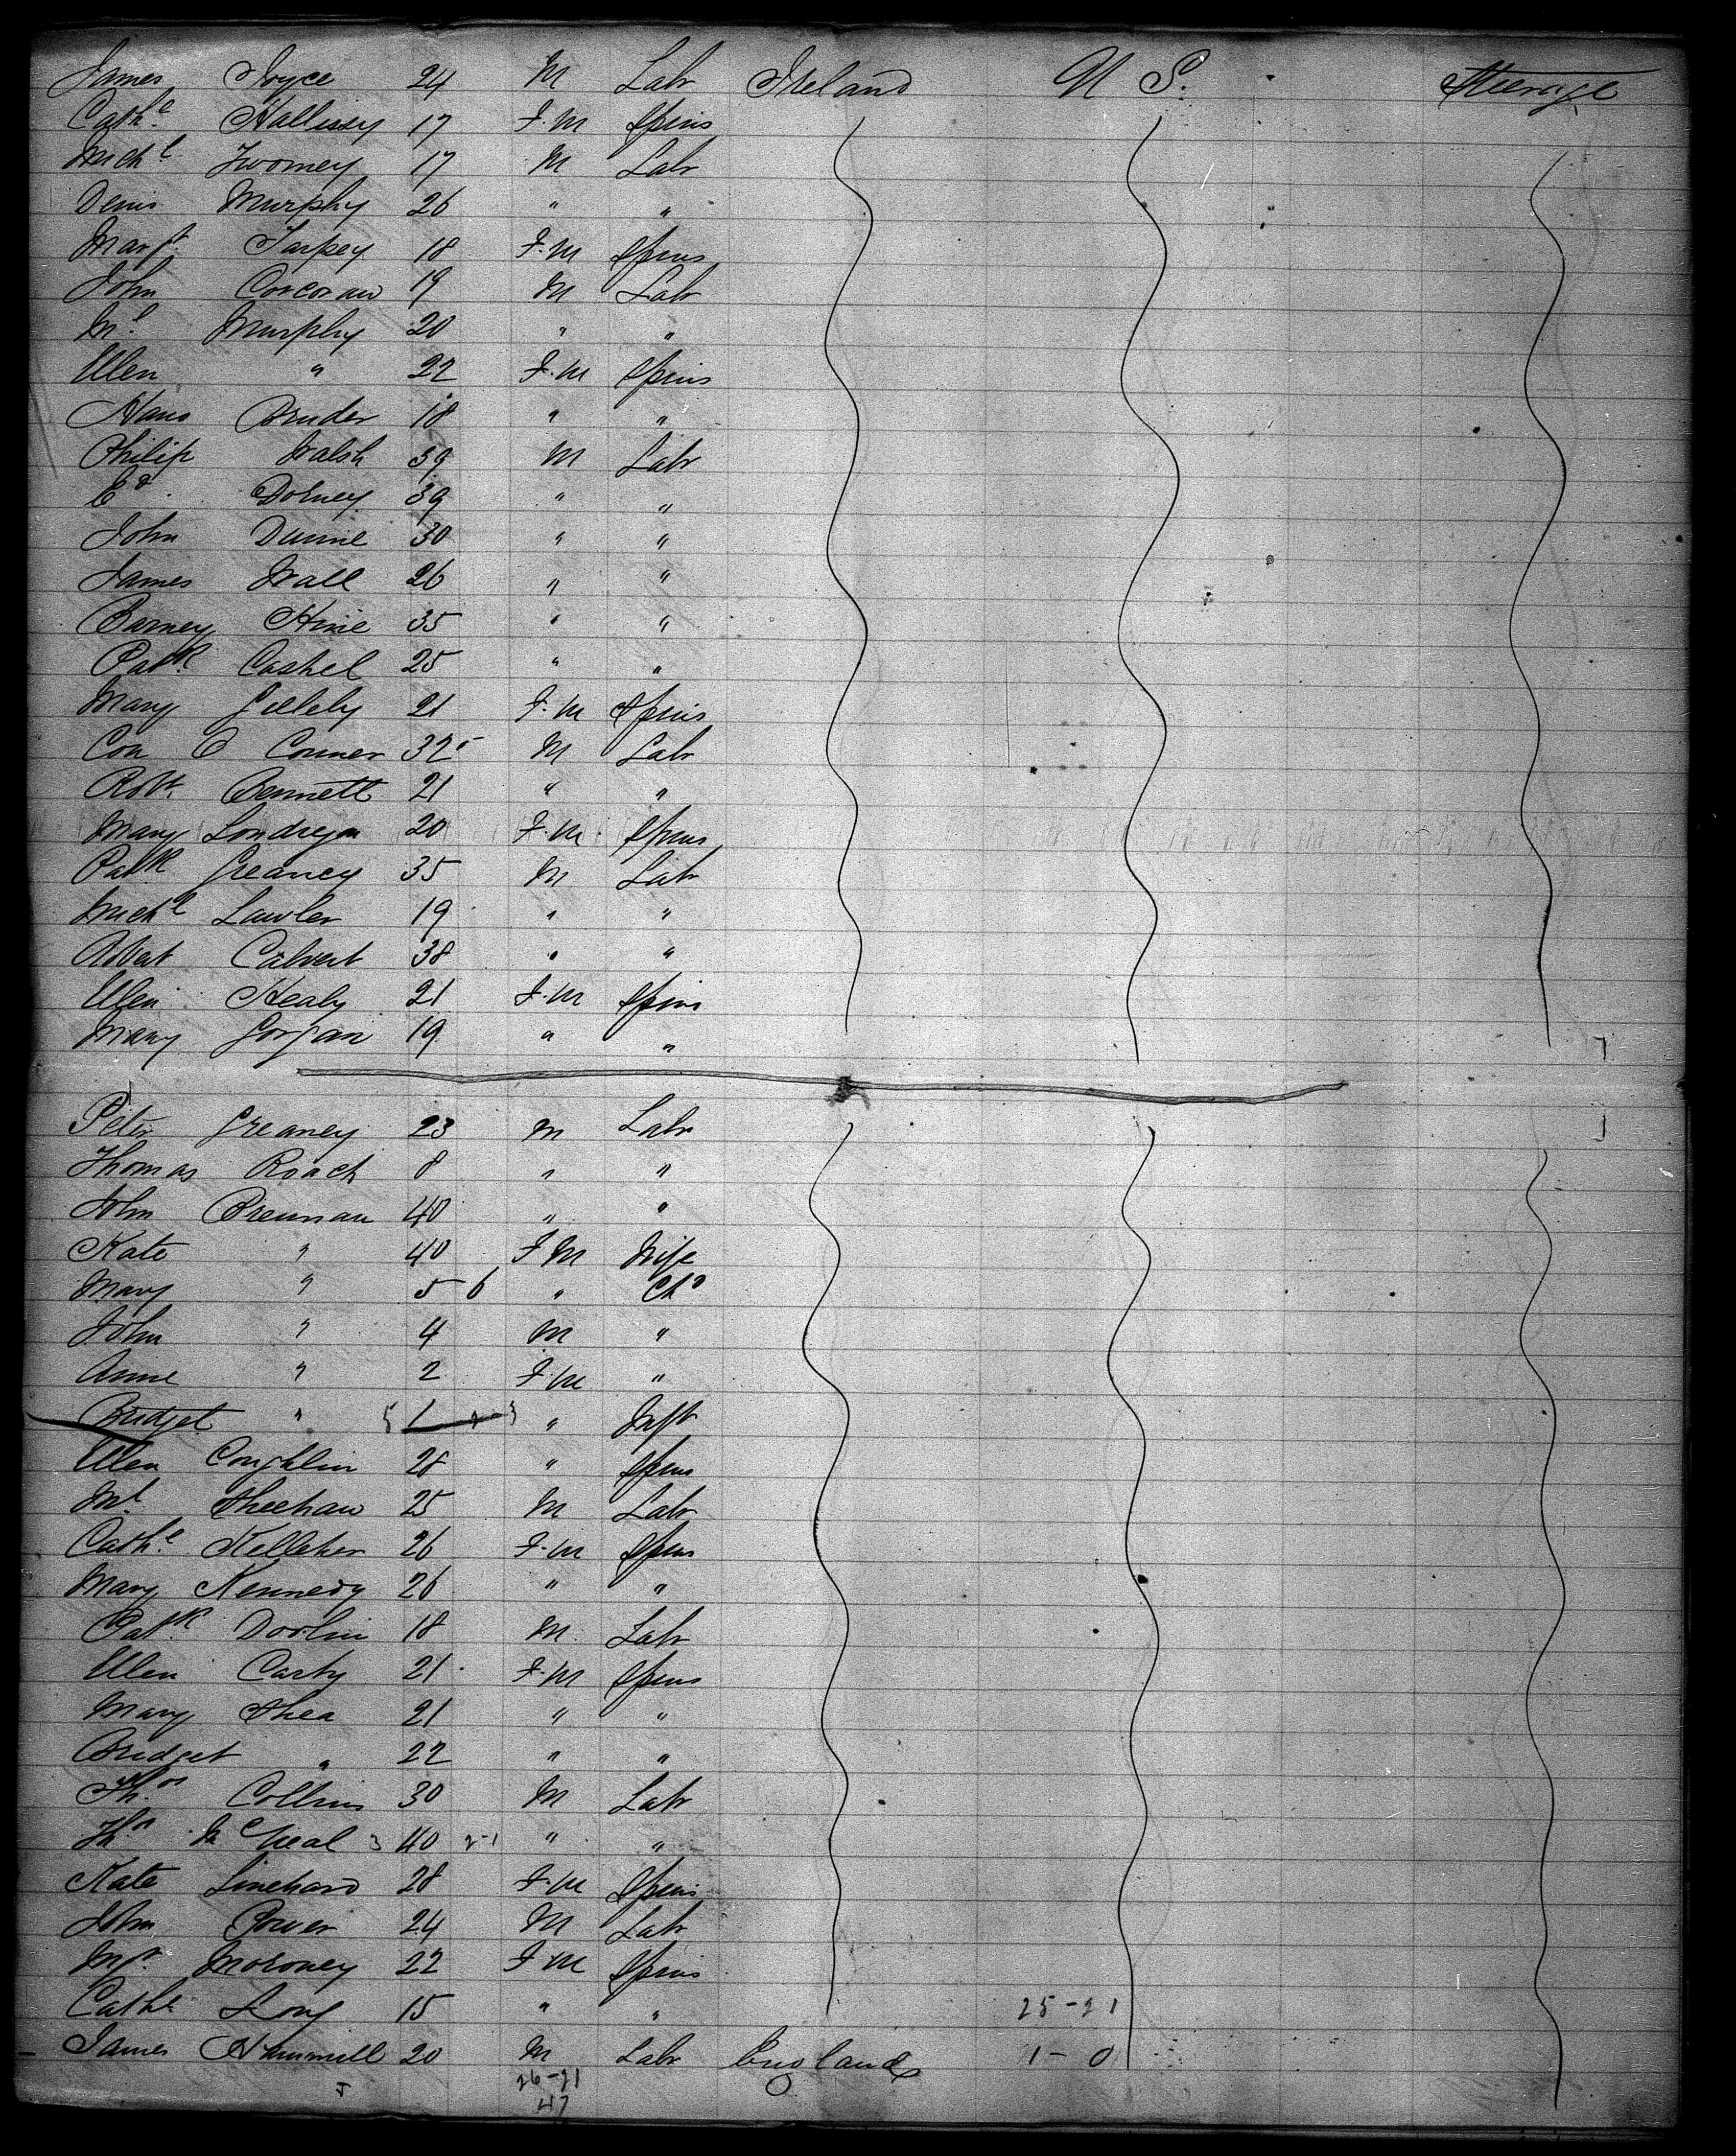 James Joyce 24 M Labr Ireland U S. Steerage
Cathe Hallissy 17 F.M Spins
Michl Twomey 17 M Labr
Denis Murphy 26 " "
Margt Tarpey 18 F.M Spins
John Corcoran 19 M Labr
Ml Murphy 20 " "
Ellen " 22 F.M Spins
Hano Bruder 18 " "
Philip Walsh 39 M Labr
Ed. Dorney 39 " "
John Dunne 30 " "
James Wall 26 " "
Barney Hine 35 " "
Patk Cashel 25 " "
Mary Gillely 21 F.M Spins
Con O Conner 32 M Labr
Robt. Bennett 21 " "
Mary Londregan 20 F.M. Spins
Patk Greaney 35 M Labr
Michl Lawler 19 " "
Robert Calvert 38 " "
Ellen Healy 21 F.M Spins
Mary Gorgan 19 " "
Peter Greaney 23 M Labr
Thomas Roach 8 " "
John Brennan 40 " "
Kate " 40 F M Wife
Mary " 5 6 " Chd
John " 4 M "
Anne " 2 F.M "
Bridget " 1 " Inft
Ellen Coughlin 28 " Spins
Ml Sheehan 25 M Labr
Cathe Kelleher 26 F.M Spins
Mary Kennedy 26 " "
Patk Doolin 18 M. Labr
Ellen Carty 21 F.M Spins
Mary Shea 21 " "
Bridget " 22 " "
Thos Collins 30 M Labr
Ths McNeal 3 40 2-1 " "
Kate Linehard 28 F.M Spins
John Power 24 M Labr
Mgt. Moroney 22 F.M Spins
Cathe Long 15 " " 25-21
James Hammill 20 M Labr England 1-0
26-21
47